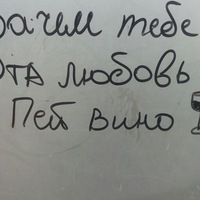 Зачем тебе
эта любовь
Пей вино